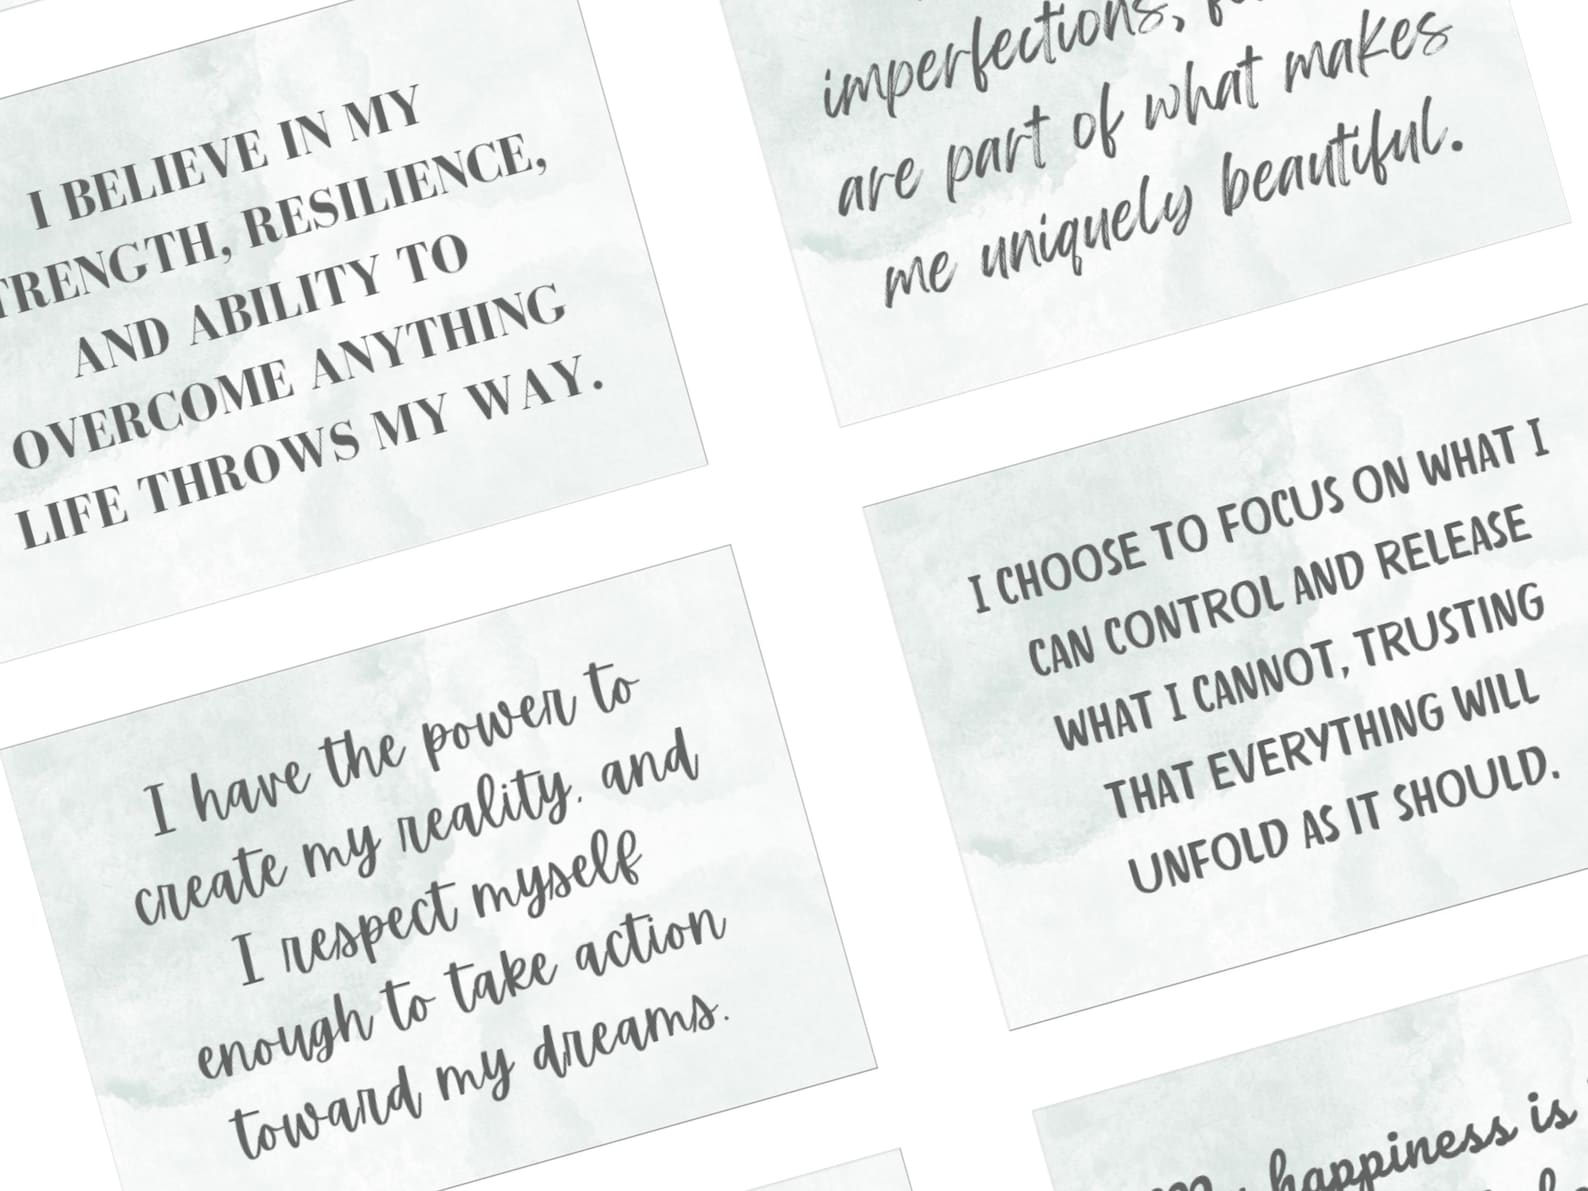 I BELIEVE IN MY
TRENGTH, RESILIENCE,
AND ABILITY TO
OVERCOME ANYTHING
LIFE THROWS MY WAY.
imperfections,
are part of what makes
me uniquely beautiful.
I have the power to
create my reality, and
I respect myself
enough to take action
toward my dreams.
I CHOOSE TO FOCUS ON WHAT I
CAN CONTROL AND RELEASE
WHAT I CANNOT, TRUSTING
THAT EVERYTHING WILL
UNFOLD AS IT SHOULD.
happiness is